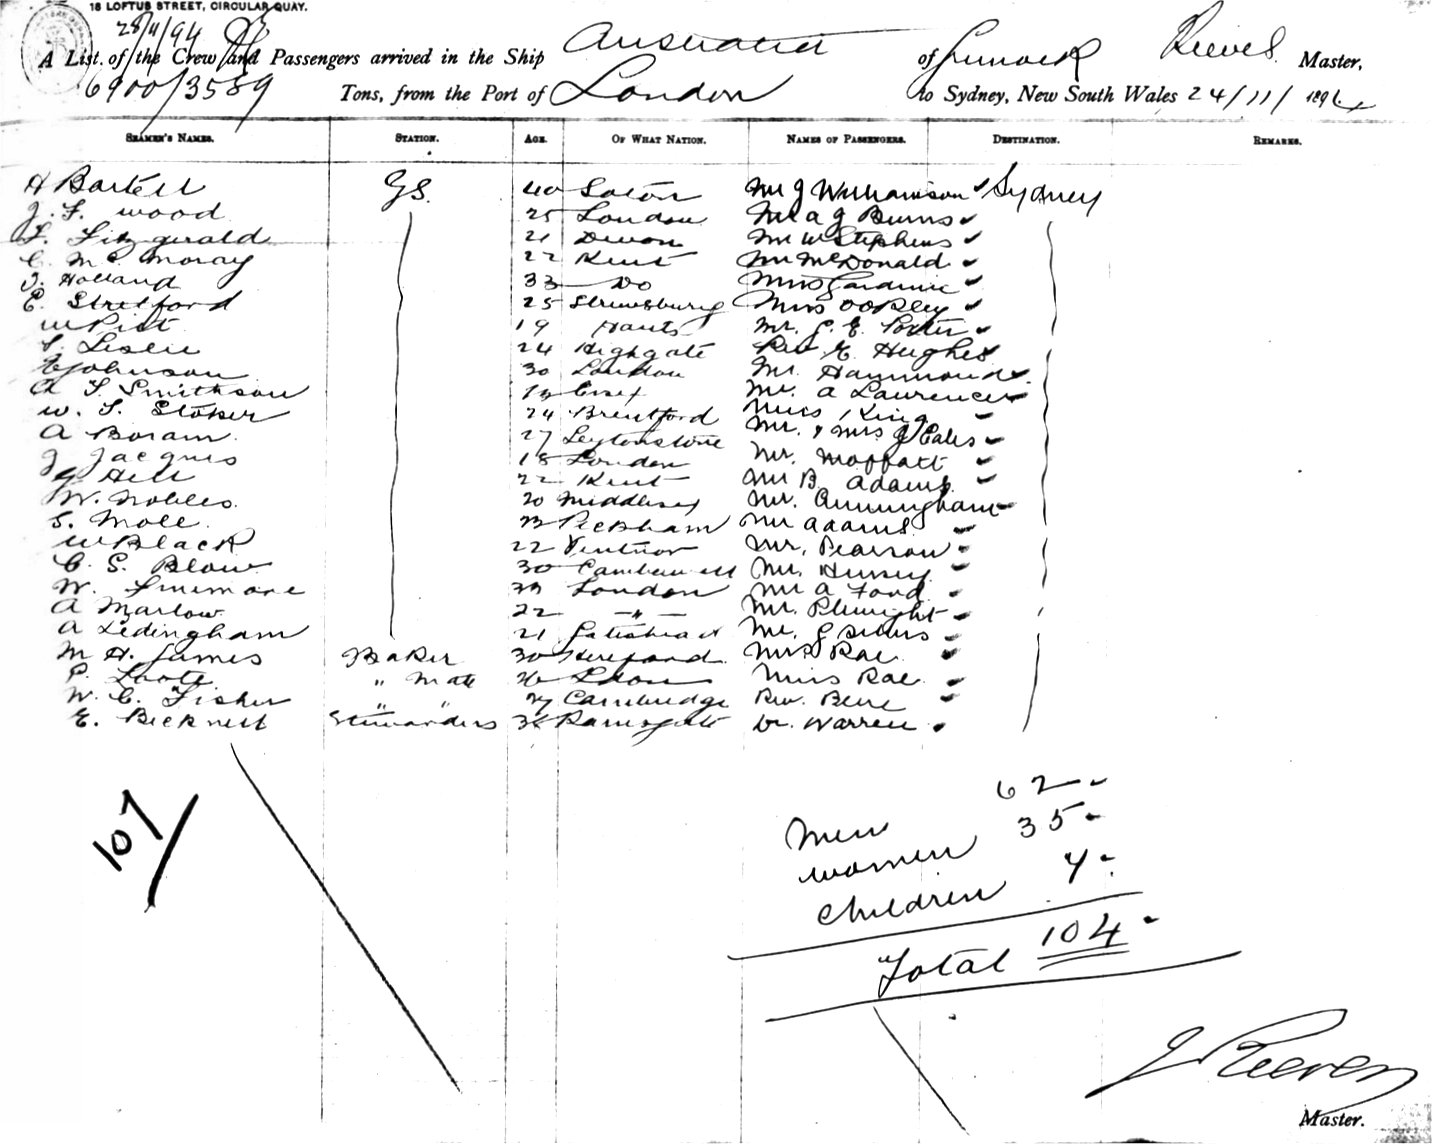 18 LOFTUS STREET, CIRCULAR QUAY.
28/11/94
A List of the Crew and Passengers arrived in the Ship Australia of Greenock Reeves Master,
6900/3589 Tons, from the Port of London to Sydney, New South Wales 24/11/1894
SEAMEN'S NAMES. STATION. AGE. OF WHAT NATION. NAMES OF PASSENGERS. DESTINATION. REMARKS.
H Bartell GS. 40 Mr J Williamson Sydney
J. F. Wood 25 London Mr A J Burns
F. Fitzgerald 21 Devon Mr W Stephens
C. McMoray 22 Kent Mr McDonald
J. Holland 33 Do Miss Gardiner
E. Stretford 25 Shrewsbury Miss Ookley
W Pitt 19 Hants Mr. G. E. Porter
F. Leslie 24 Highgate Rev E. Hughes
E Johnson 30 London Mr. Hammond
A F. Smithson Essex Mr. A Laurence
W. F. Stoker 24 Brentford Miss King
A Boram 27 Leytonstone Mr. & Mrs J Eales
J Jacques 18 London Mr. Moffatt
G Hill 22 Kent Mr B. Adams
W. Nobles 20 Middlesex Mr. Cunningham
S. Mole. 23 Peckham Mr Adams
W Black 22 Ventnor Mr. Pearson
C. S. Blow 30 Camberwell Mr. Hersey
W. 23 London Mr A Ford
A Marlow 22 — " — Mr.
A Ledingham 21 Gateshead Mr. G
M H. James Baker 30 Hereford Mrs Rae
" Mate 26 Miss Rae
W. C. Fisher " " 27 Cambridge Rev.
E. Bicknell Stewardess 38 Ramsgate Dr. Warren
107
Men 62
Women 35
Children 7
Total 104
J Reeves
Master.